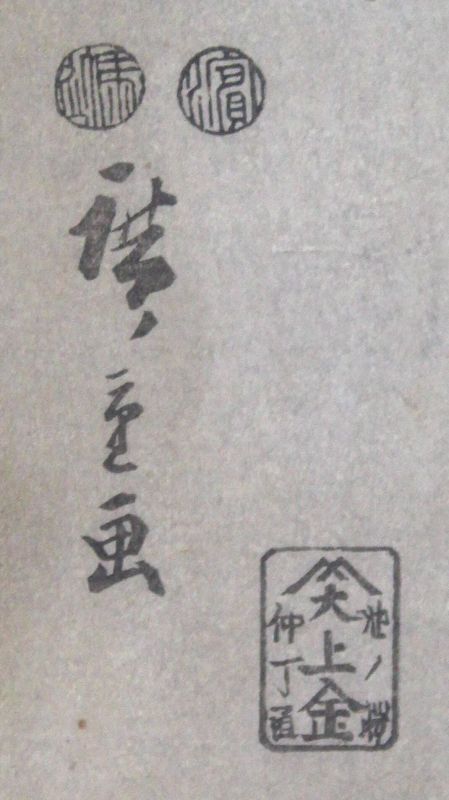 濱
馬込
廣重画
池ノ端
上金
仲丁通